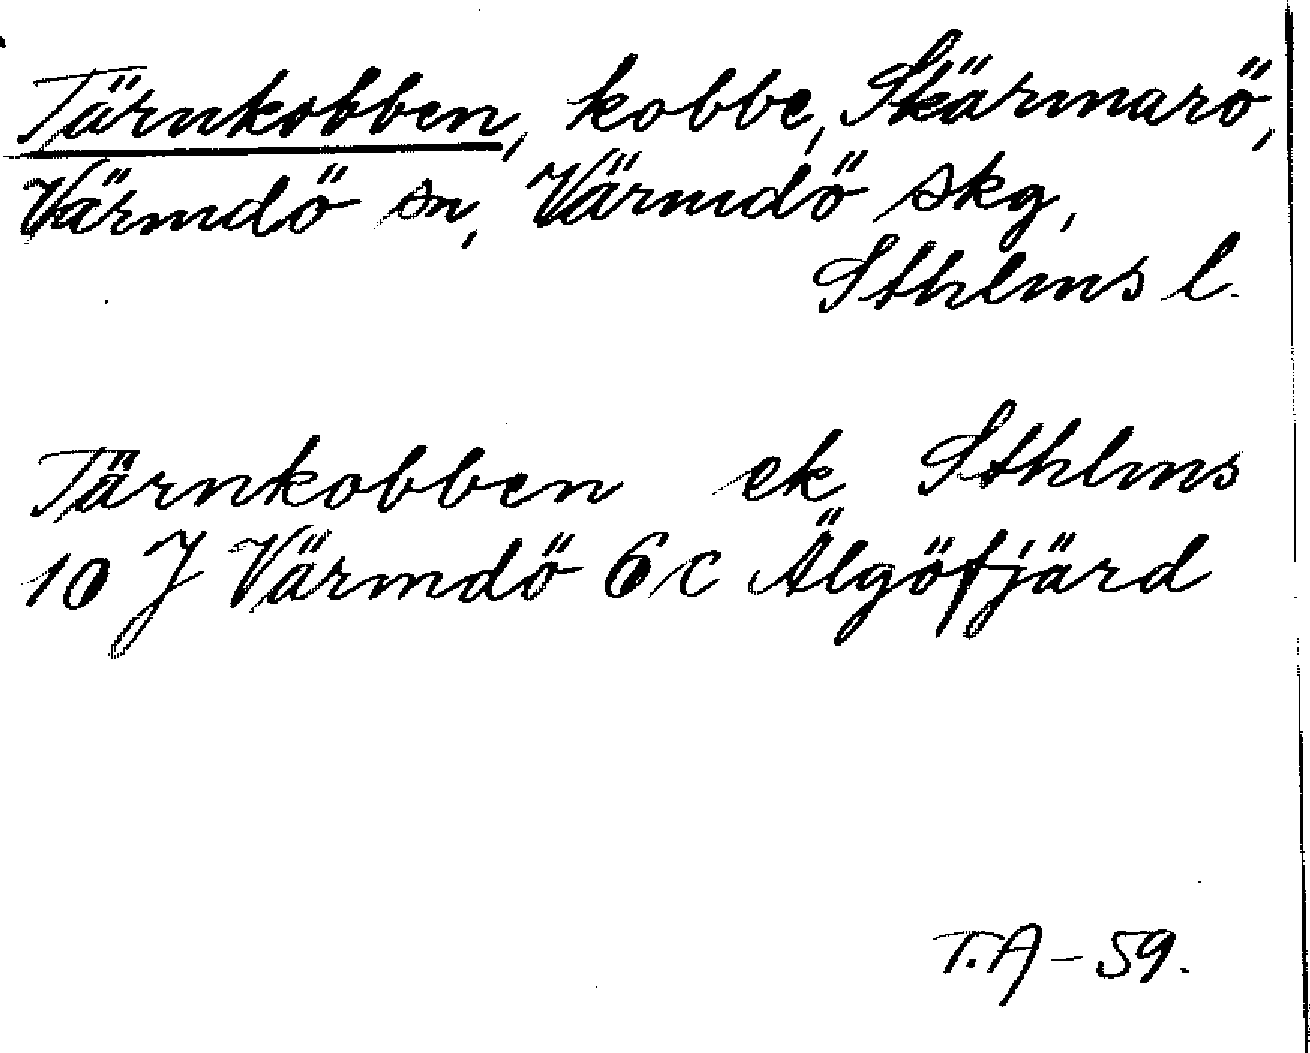 Tärnkobben, kobbe, Skärmarö,
Värmdö sn, Värmdö skg,
Sthlms l.
Tärnkobben ek Sthlms
10 J Värmdö 6c Älgöfjärd
T.A – 59.